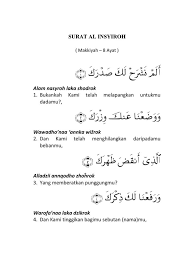 SURAT AL INSYIROH
( Makkiyah – 8 Ayat )
أَلَمْ نَشْرَحْ لَكَ صَدْرَكَ ﴿١﴾
Alam nasyroh laka shodrok
1. Bukankah Kami telah melapangkan untukmu
dadamu?,
وَوَضَعْنَا عَنكَ وِزْرَكَ ﴿٢﴾
Wawadho'naa 'anka wizrok
2. Dan Kami telah menghilangkan daripadamu
bebanmu,
ٱلَّذِىٓ أَنقَضَ ظَهْرَكَ ﴿٣﴾
Alladzii anqodho zhohrok
3. Yang memberatkan punggungmu?
وَرَفَعْنَا لَكَ ذِكْرَكَ ﴿٤﴾
Warofa'naa laka dzikrok
4. Dan Kami tinggikan bagimu sebutan (nama)mu,